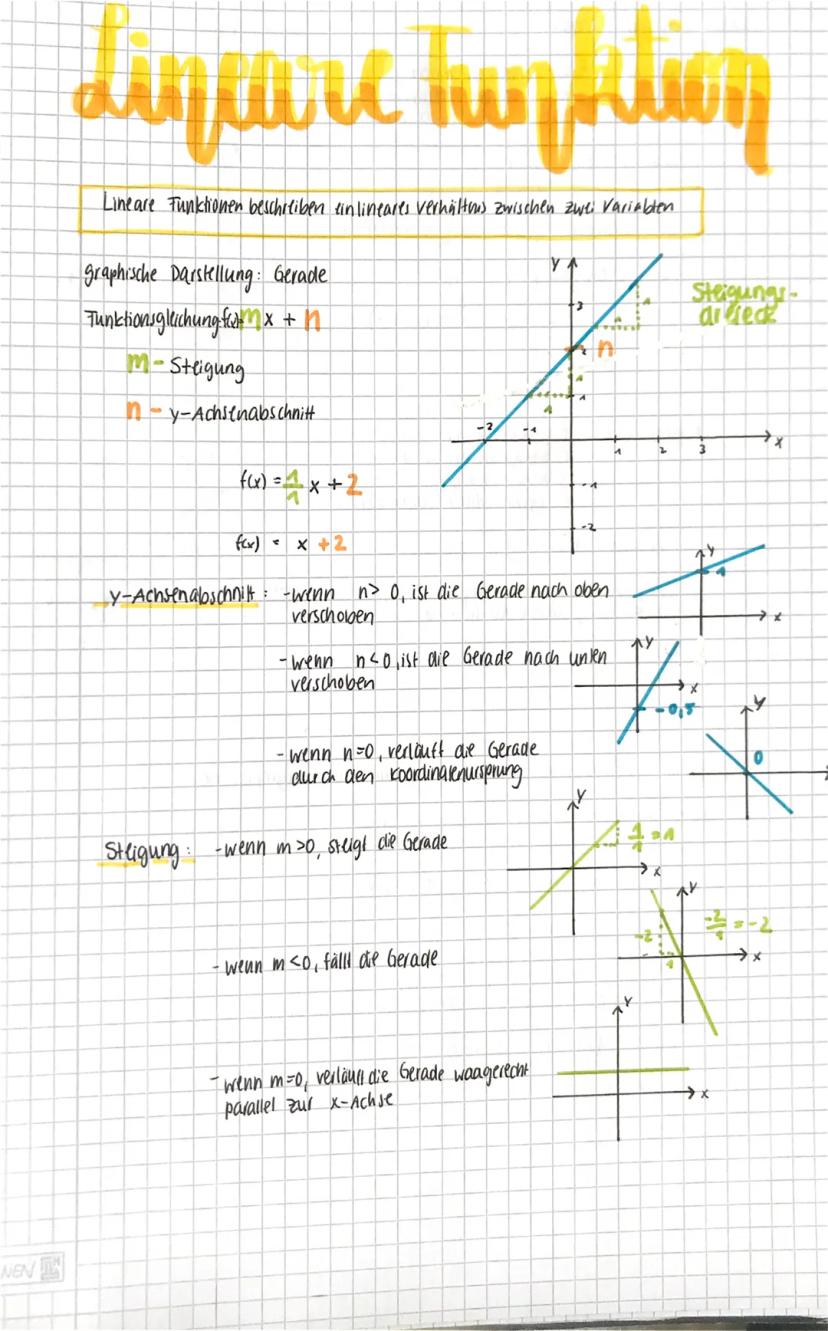 Lineare Funktion
Lineare Funktionen beschreiben ein lineares Verhältnis zwischen zwei Variablen
graphische Darstellung: Gerade
Funktionsgleichung: f(x)= mx + n
m - Steigung
n - y-Achsenabschnitt
f(x) = 1/1 x + 2
f(x) = x + 2
y
3
2
n
1
1
1
1
1
-2
-1
1
2
3
x
-1
-2
Steigungs-
dreieck
y-Achsenabschnitt: - wenn n > 0, ist die Gerade nach oben
verschoben
y
1
x
- wenn n < 0, ist die Gerade nach unten
verschoben
y
x
-0,5
- wenn n=0, verläuft die Gerade
durch den Koordinatenursprung
y
0
Steigung: - wenn m > 0, steigt die Gerade
y
1/1 = 1
x
- wenn m < 0, fällt die Gerade
y
-2
1
-2/1 = -2
x
- wenn m=0, verläuft die Gerade waagerecht
parallel zur x-Achse
y
x
NEN